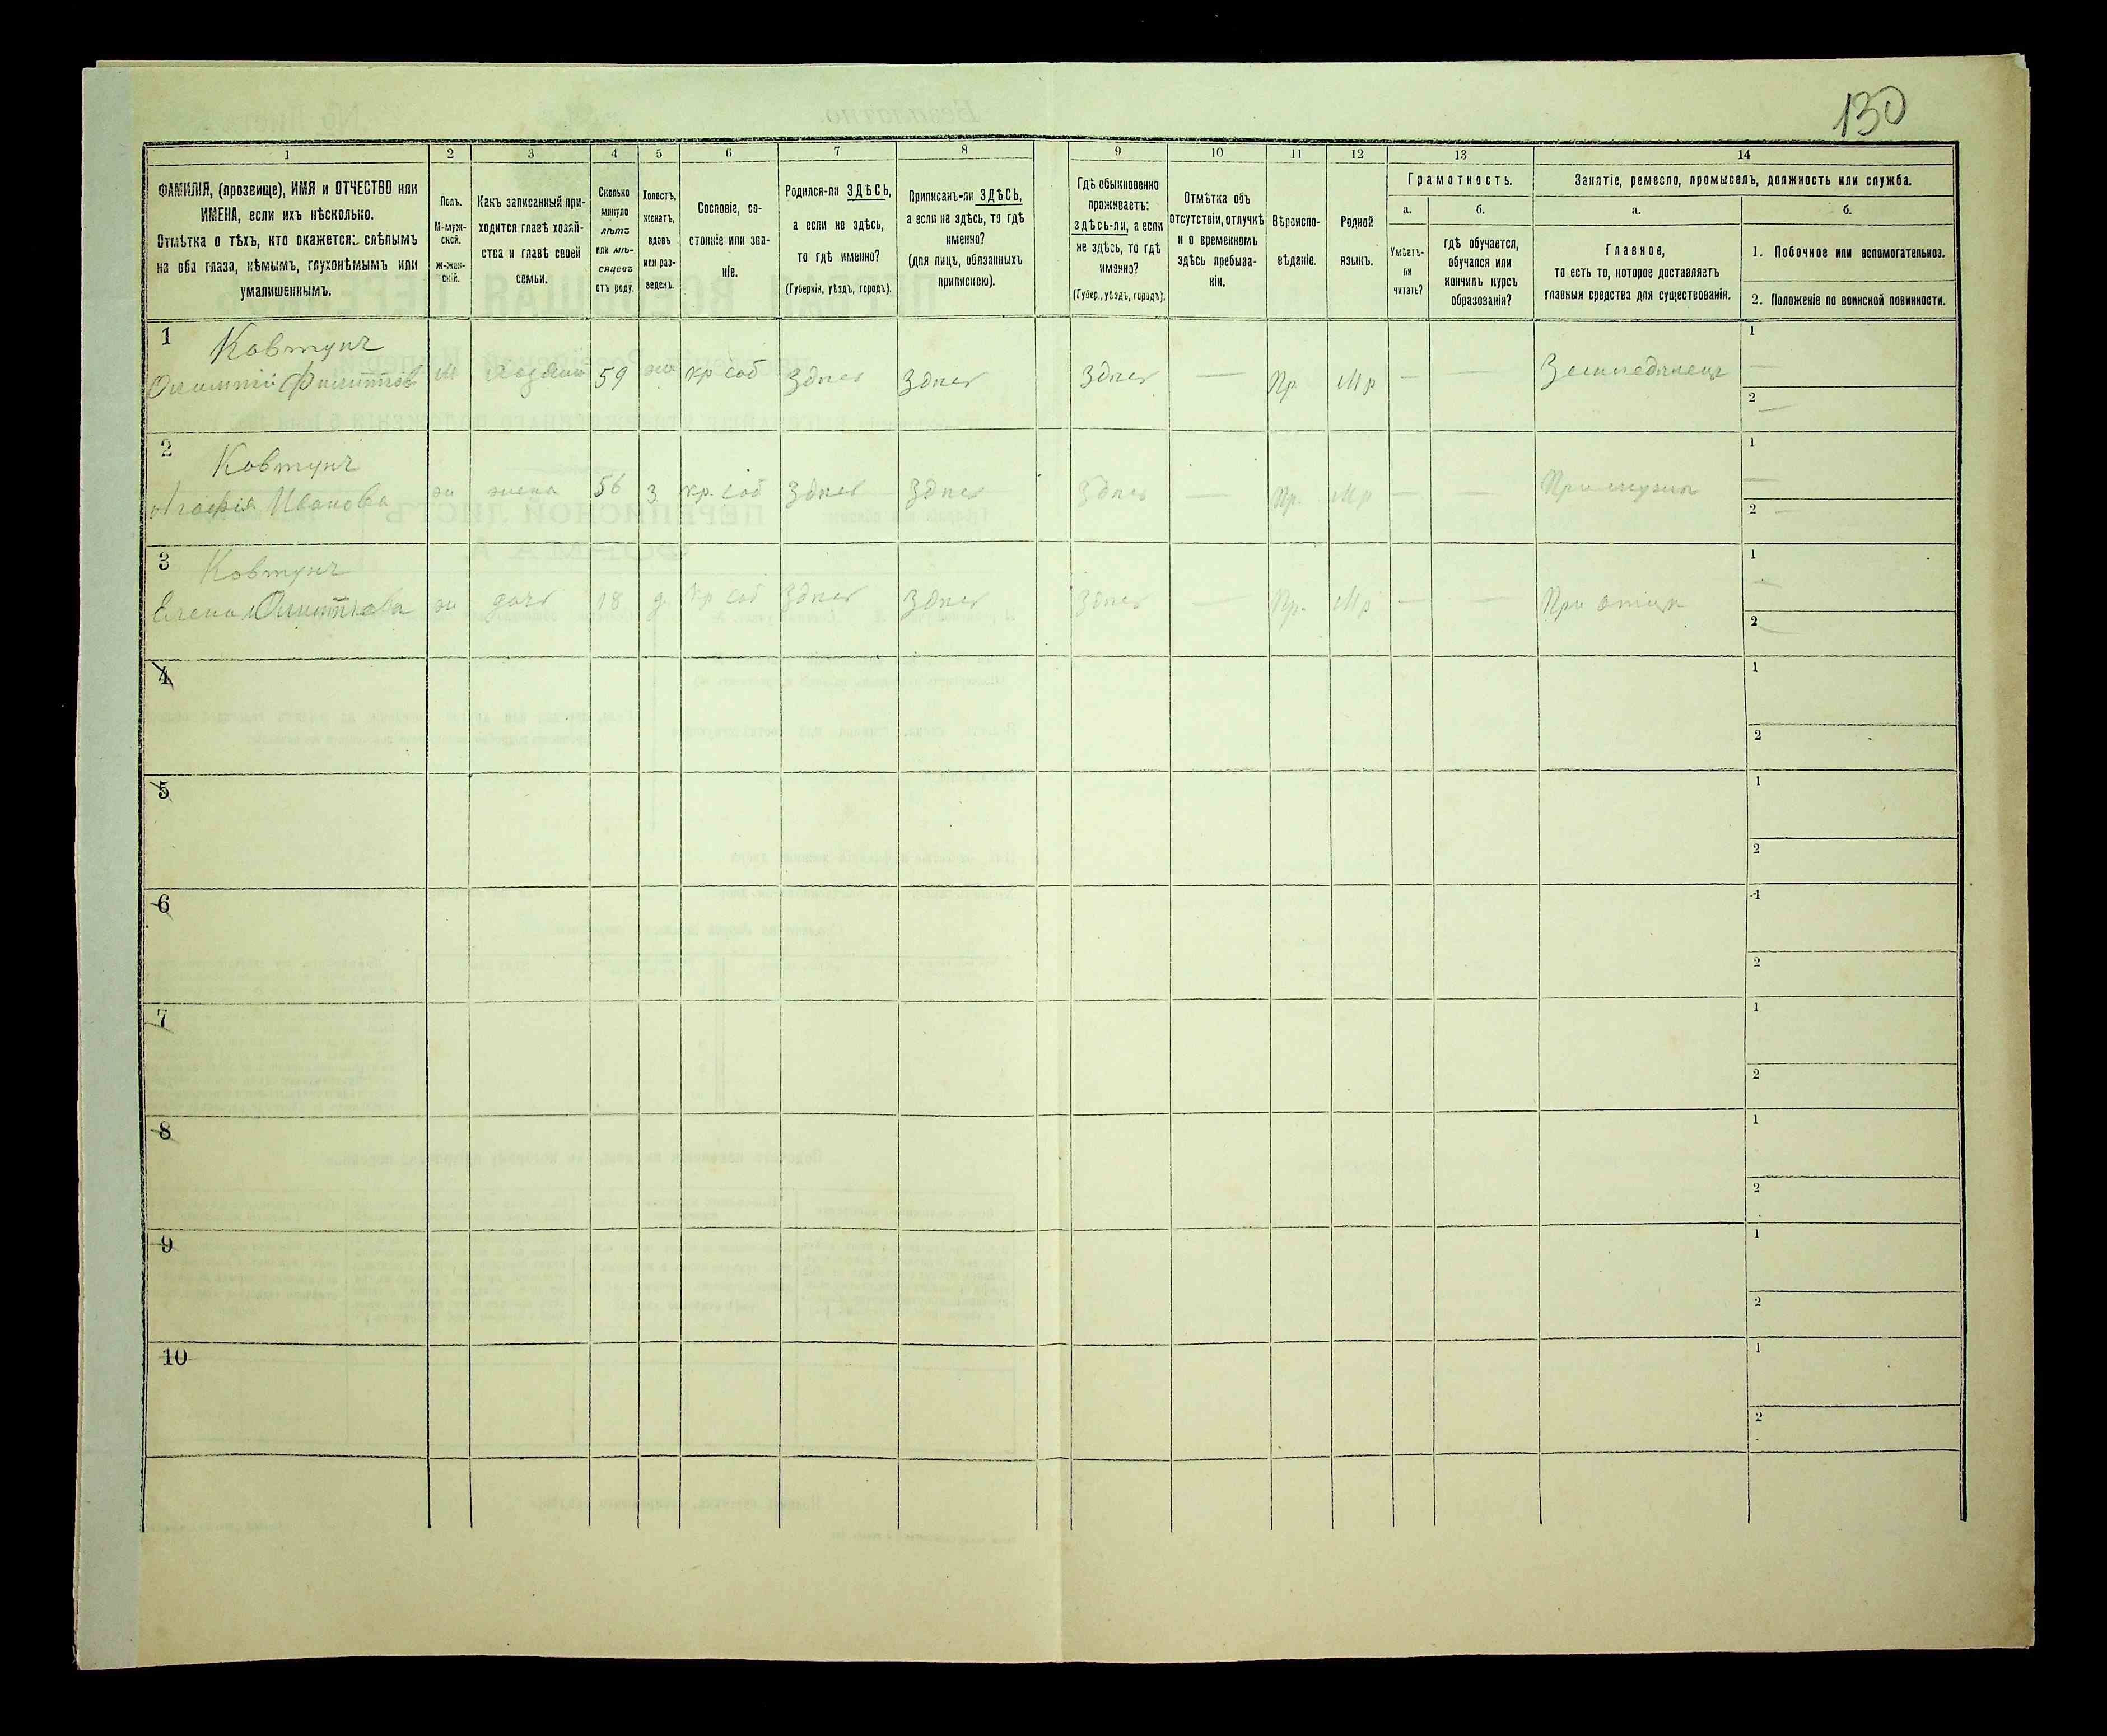 130
1 2 3 4 5 6 7 8 9 10 11 12 13 14
ФАМИЛІЯ, (прозвище), ИМЯ и ОТЧЕСТВО или
ИМЕНА, если ихъ нѣсколько.
Отмѣтка о тѣхъ, кто окажется: слѣпымъ
на оба глаза, нѣмымъ, глухонѣмымъ или
умалишеннымъ.
Полъ.
М-муж-
ской.
Ж-жен-
скій.
Какъ записанный при-
ходится главѣ хозяй-
ства и главѣ своей
семьи.
Сколько
минуло
лѣтъ
или мѣ-
сяцевъ
отъ роду.
Холостъ,
женатъ,
вдовъ
или раз-
веденъ.
Сословіе, со-
стояніе или зва-
ніе.
Родился-ли ЗДѢСЬ,
а если не здѣсь,
то гдѣ именно?
(Губернія, уѣздъ, городъ).
Приписанъ-ли ЗДѢСЬ,
а если не здѣсь, то гдѣ
именно?
(для лицъ, обязанныхъ
припискою).
Гдѣ обыкновенно
проживаетъ:
здѣсь-ли, а если
не здѣсь, то гдѣ
именно?
(Губер., уѣздъ, городъ).
Отмѣтка объ
отсутствіи, отлучкѣ
и о временномъ
здѣсь пребыва-
ніи.
Вѣроиспо-
вѣданіе.
Родной
языкъ.
Грамотность.
а.
Умѣетъ-
ли
читать?
б.
гдѣ обучается,
обучался или
кончилъ курсъ
образованія?
Занятіе, ремесло, промыселъ, должность или служба.
а.
Главное,
то есть то, которое доставляетъ
главныя средства для существованія.
б.
1. Побочное или вспомогательное.
2. Положеніе по воинской повинности.
1 Ковтунъ 1 —
м хозяинъ 59 жен кр соб Здѣсь Здѣсь Здѣсь — Пр Мр — — Земледѣлецъ
2 —
2 Ковтунъ 1 —
Агафія Иванова ж жена 56 з кр. соб Здѣсь Здѣсь Здѣсь — Пр. Мр — — При мужѣ
2 —
3 Ковтунъ 1 —
Елена ж дочь 18 д кр соб Здѣсь Здѣсь Здѣсь — Пр. Мр — — При отцѣ
2 —
4 1
2
5 1
2
6 1
2
7 1
2
8 1
2
9 1
2
10 1
2